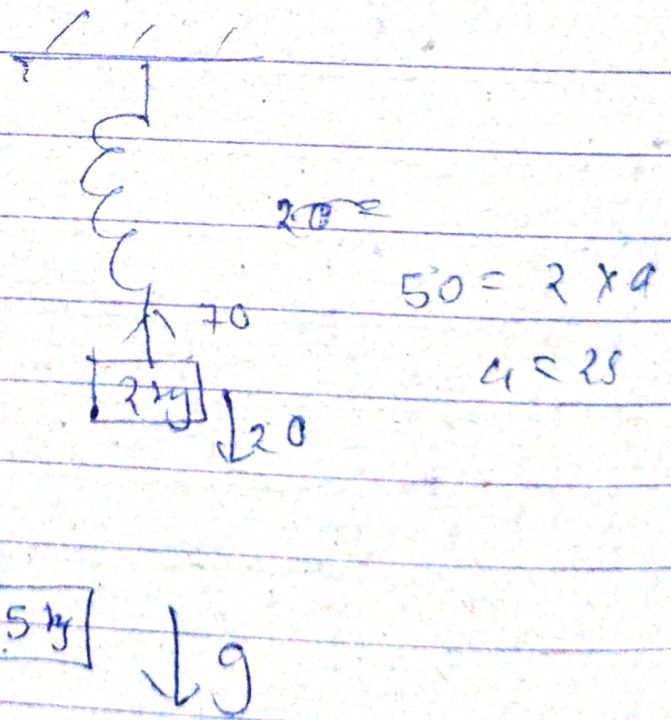 20=
50 = 2 × a
70
a = 25
2 kg
20
5 kg
g